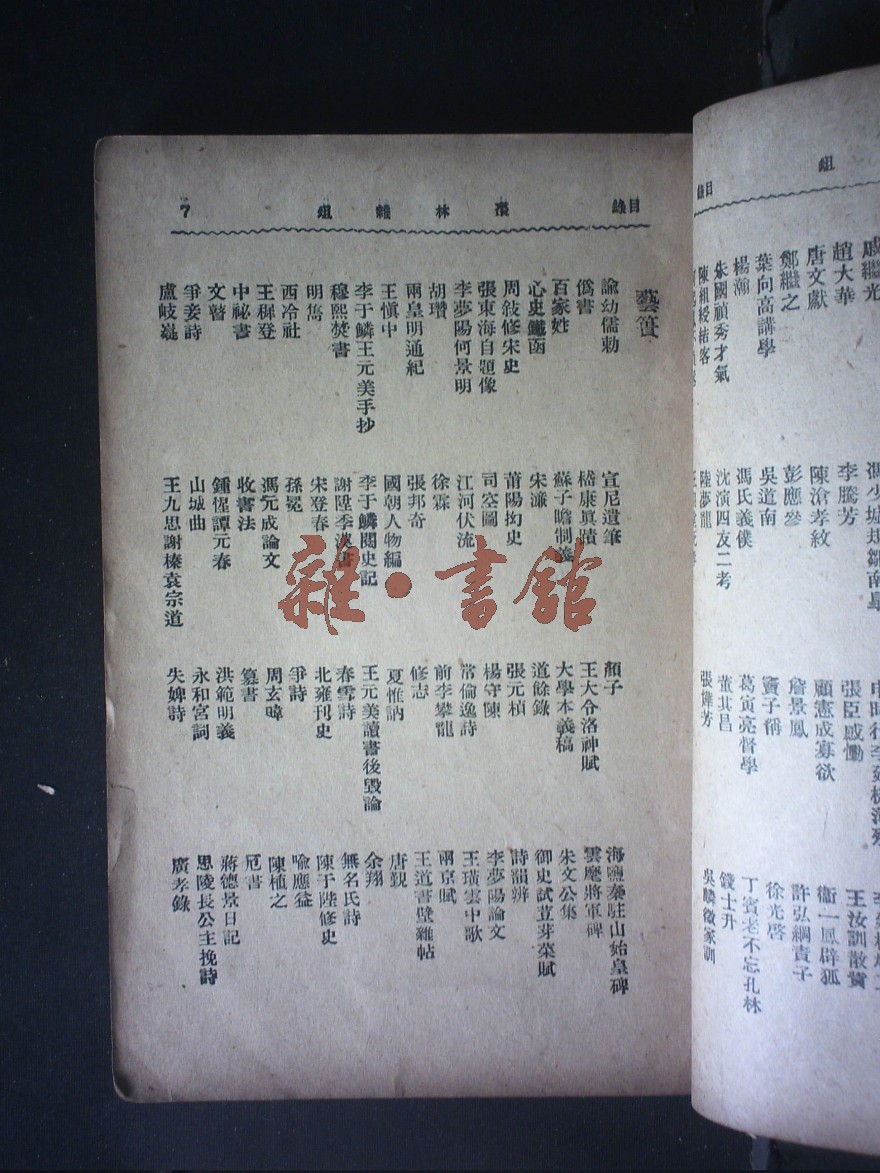 目錄
組
戚繼光
趙大華 李騰芳 張臣感慟 王汝訓散貲
唐文獻 陳滄孝紋 顧憲成寡欲 衞一鳳辟狐
鄭繼之 彭應參 詹景鳳 許弘綱責子
葉向高講學 吳道南 竇子稱 徐光啓
楊瀚 馮氏義僕 葛寅亮督學 丁賓老不忘孔林
朱國禎秀才氣 沈演四友二考 董其昌 錢士升
陳組綬結客 陸夢龍 張瑋芳 吳麟徵家訓
目錄 棗林雜組 7
藝簣
諭幼儒勅 宣尼遺筆 顏子 海鹽秦駐山始皇碑
僞書 嵇康眞蹟 王大令洛神賦 雲麾將軍碑
百家姓 蘇子瞻制義 大學本義稿 朱文公集
心史鐵函 宋濂 道餘錄 御史試荳芽菜賦
周敍修宋史 莆陽抝史 張元楨 詩韻辨
張東海自題像 司空圖 楊守陳 李夢陽論文
李夢陽何景明 江河伏流 常倫逸詩 王璜雲中歌
胡瓚 徐霖 前李攀龍 兩京賦
兩皇明通紀 張邦奇 修志 王道書壁雜帖
王愼中 國朝人物編 夏惟訥 唐覲
李于鱗王元美手抄 李于鱗閱史記 王元美讀書後毀論 余翔
穆熙焚書 謝陞季漢書 春雪詩 無名氏詩
明雋 宋登春 北雍刊史 陳于陛修史
西冷社 孫冕 爭詩 喩應益
王穉登 馮元成論文 周玄暐 陳植之
中祕書 收書法 纂書 卮書
文瞽 鍾惺譚元春 洪範明義 蔣德景日記
爭妾詩 山坡曲 永和宮詞 思陵長公主挽詩
盧岐嶷 王九思謝榛袁宗道 失婢詩 廣孝錄
雜·書館